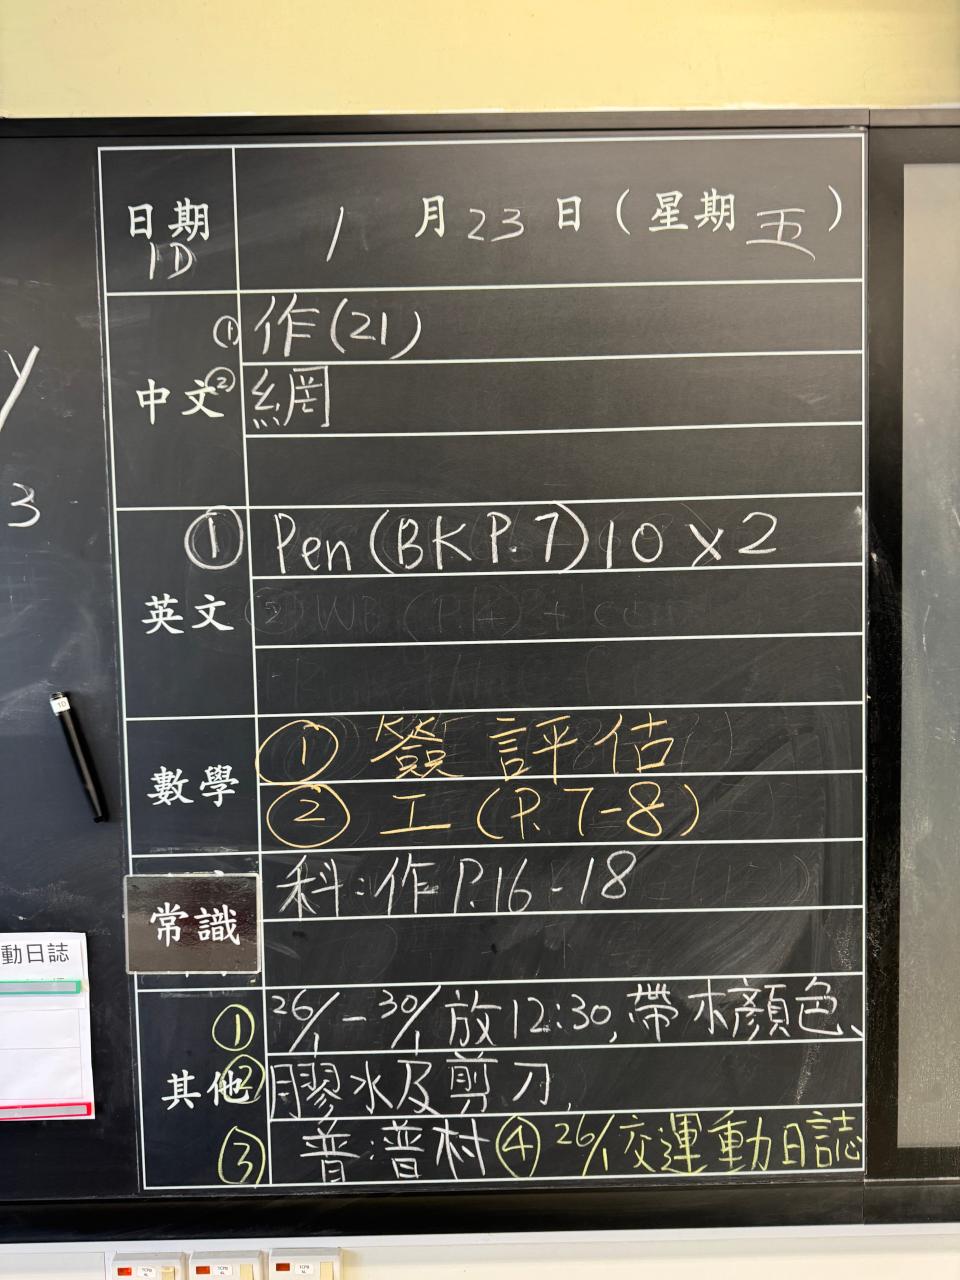 日期 1 月 23 日 ( 星期 五 )
1D
中文 ① 作(21)
② 網
英文 ① Pen (BK P.7) 10 x 2
數學 ① 簽 評估
② 工 (P. 7-8)
常識 科:作 P.16-18
其他 ① 26/1 - 30/1 放 12:30, 帶木顏色、
② 膠水及剪刀,
③ 普:普村 ④ 26/1交運動日誌
y
3
1D
動日誌